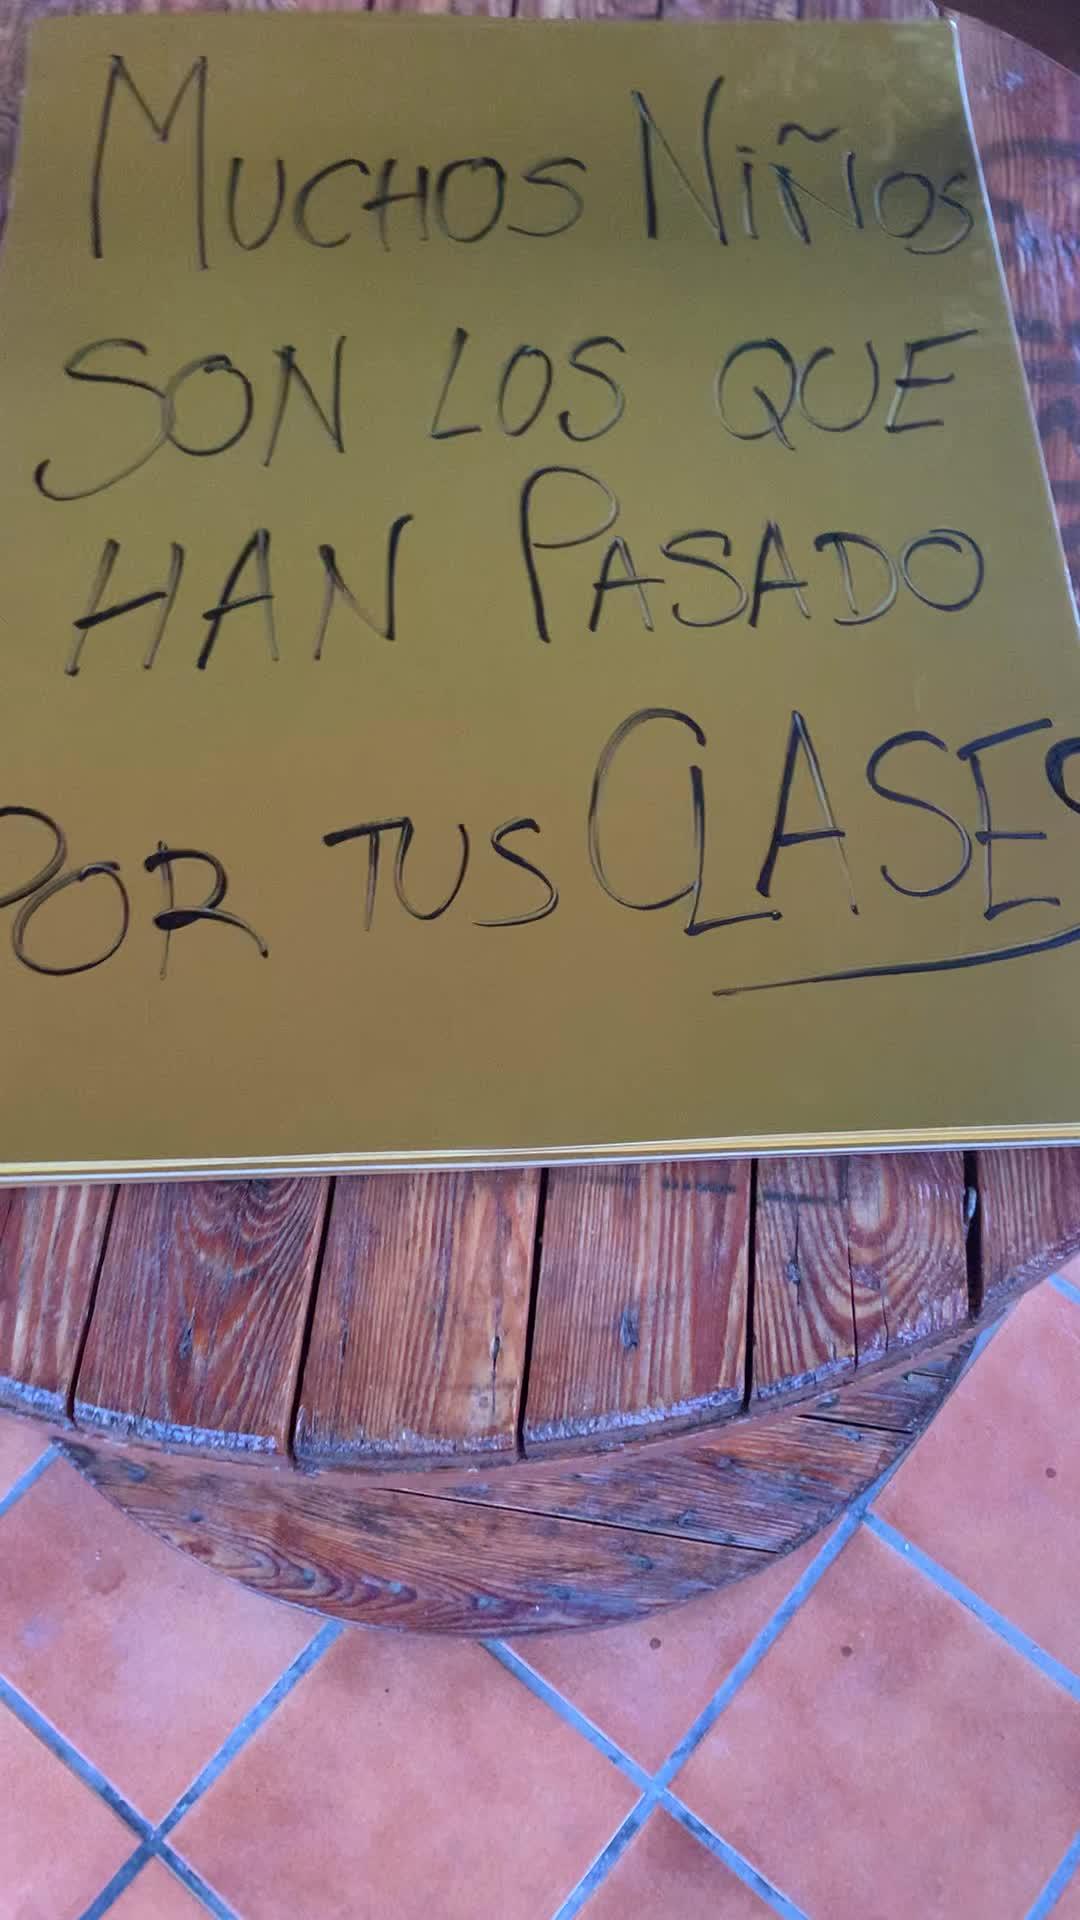 MUCHOS NiÑOS
SON LOS QUE
HAN PASADO
POR TUS CLASES